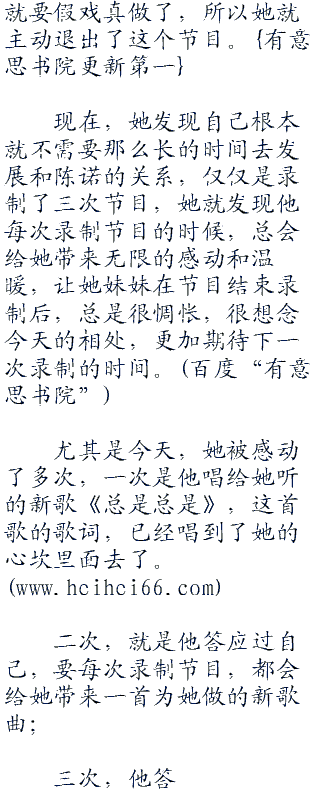 就要假戏真做了，所以她就
主动退出了这个节目。{有意
思书院更新第一}
现在，她发现自己根本
就不需要那么长的时间去发
展和陈诺的关系，仅仅是录
制了三次节目，她就发现他
每次录制节目的时候，总会
给她带来无限的感动和温
暖，让她妹妹在节目结束录
制后，总是很惆怅，很想念
今天的相处，更加期待下一
次录制的时间。(百度“有意
思书院”)
尤其是今天，她被感动
了多次，一次是他唱给她听
的新歌《总是总是》，这首
歌的歌词，已经唱到了她的
心坎里面去了。
(www.hcihci66.com)
二次，就是他答应过自
己，要每次录制节目，都会
给她带来一首为她做的新歌
曲；
三次，他答